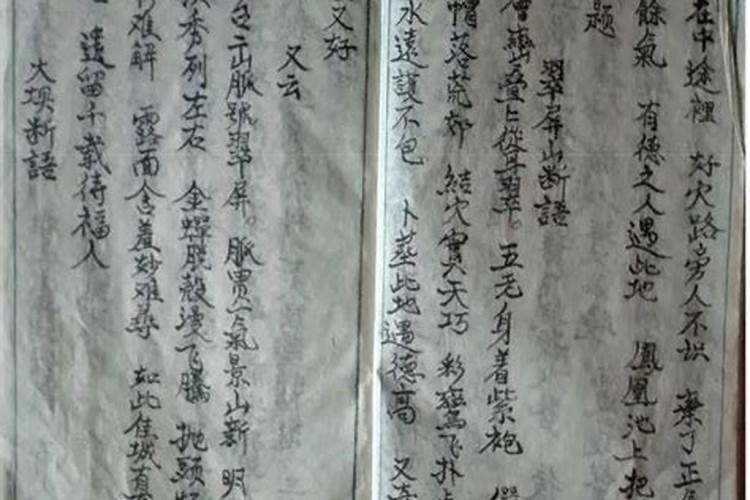 在中途裡 好穴路旁人不识 棄了正
餘氣 有德之人遇此地 鳳凰池上把
题
翠屏山断語
層巒叠上從耸翠。五老身着紫袍
帽落荒郊 結穴實天巧 彩鸞飞扑
水遠護不包 卜塟此地遇德高 又
又好
又云
白云山脈號翠屏。脈贯一氣景山新 明
秀列左右 金蟬脱殻漫飞騰 抛頭
难解 露面含羞妙难尋 如此佳城有
遗留千载待福人
大坝断語